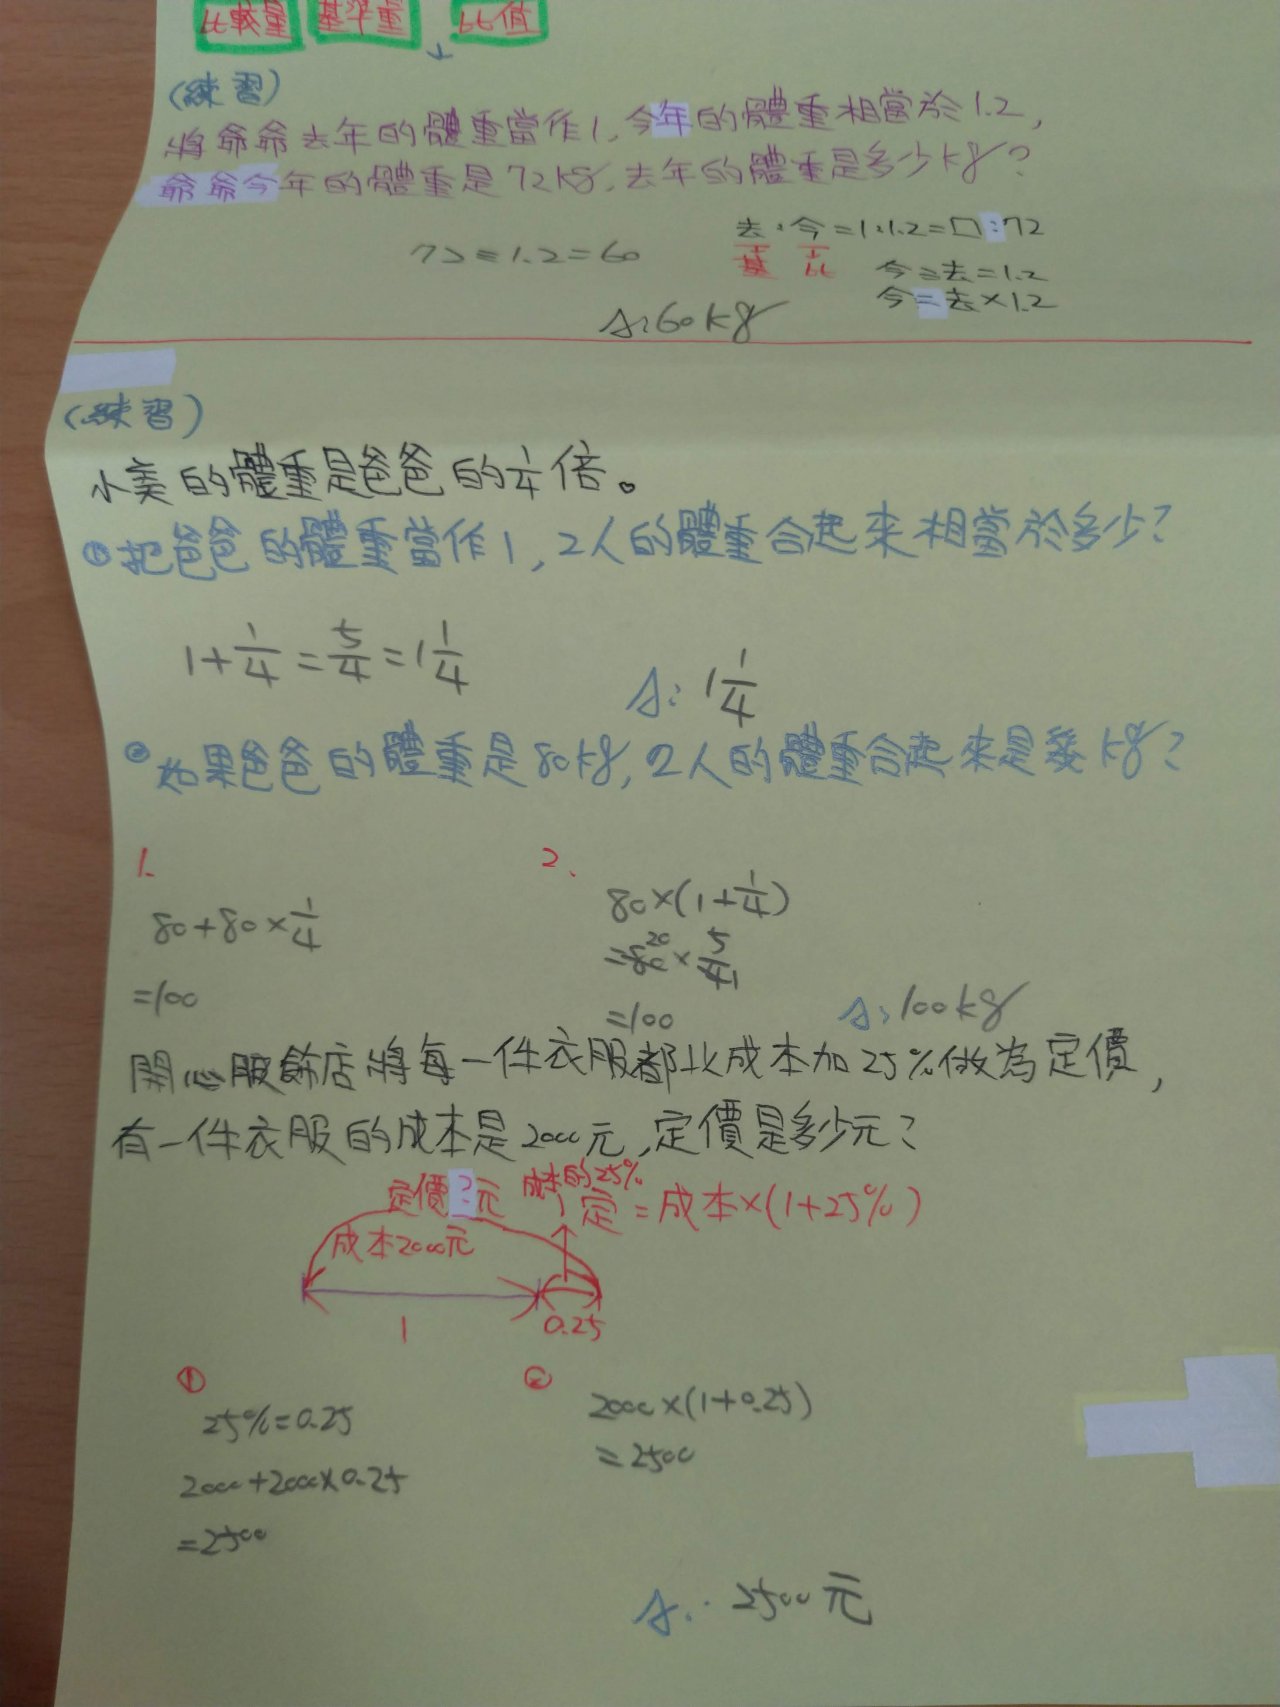 比較量 基準量 比值
(練習)
將爺爺去年的體重當作1,今年的體重相當於1.2,
爺爺今年的體重是72kg,去年的體重是多少kg?
72÷1.2=60
去:今=1:1.2=□:72
基 比
今÷去=1.2
今=去×1.2
A:60kg
(練習)
小美的體重是爸爸的1/4倍。
①把爸爸的體重當作1,2人的體重合起來相當於多少?
1+1/4=5/4=1 1/4
A:1 1/4
②如果爸爸的體重是80kg,2人的體重合起來是幾kg?
1.
80+80×1/4
=100
2.
80×(1+1/4)
=80 20×5/4 1
=100
A:100kg
開心服飾店將每一件衣服都比成本加25%做為定價,
有一件衣服的成本是2000元,定價是多少元?
定價?元
成本的25%
定=成本×(1+25%)
成本2000元
1
0.25
①
25%=0.25
2000+2000×0.25
=2500
②
2000×(1+0.25)
=2500
A:2500元